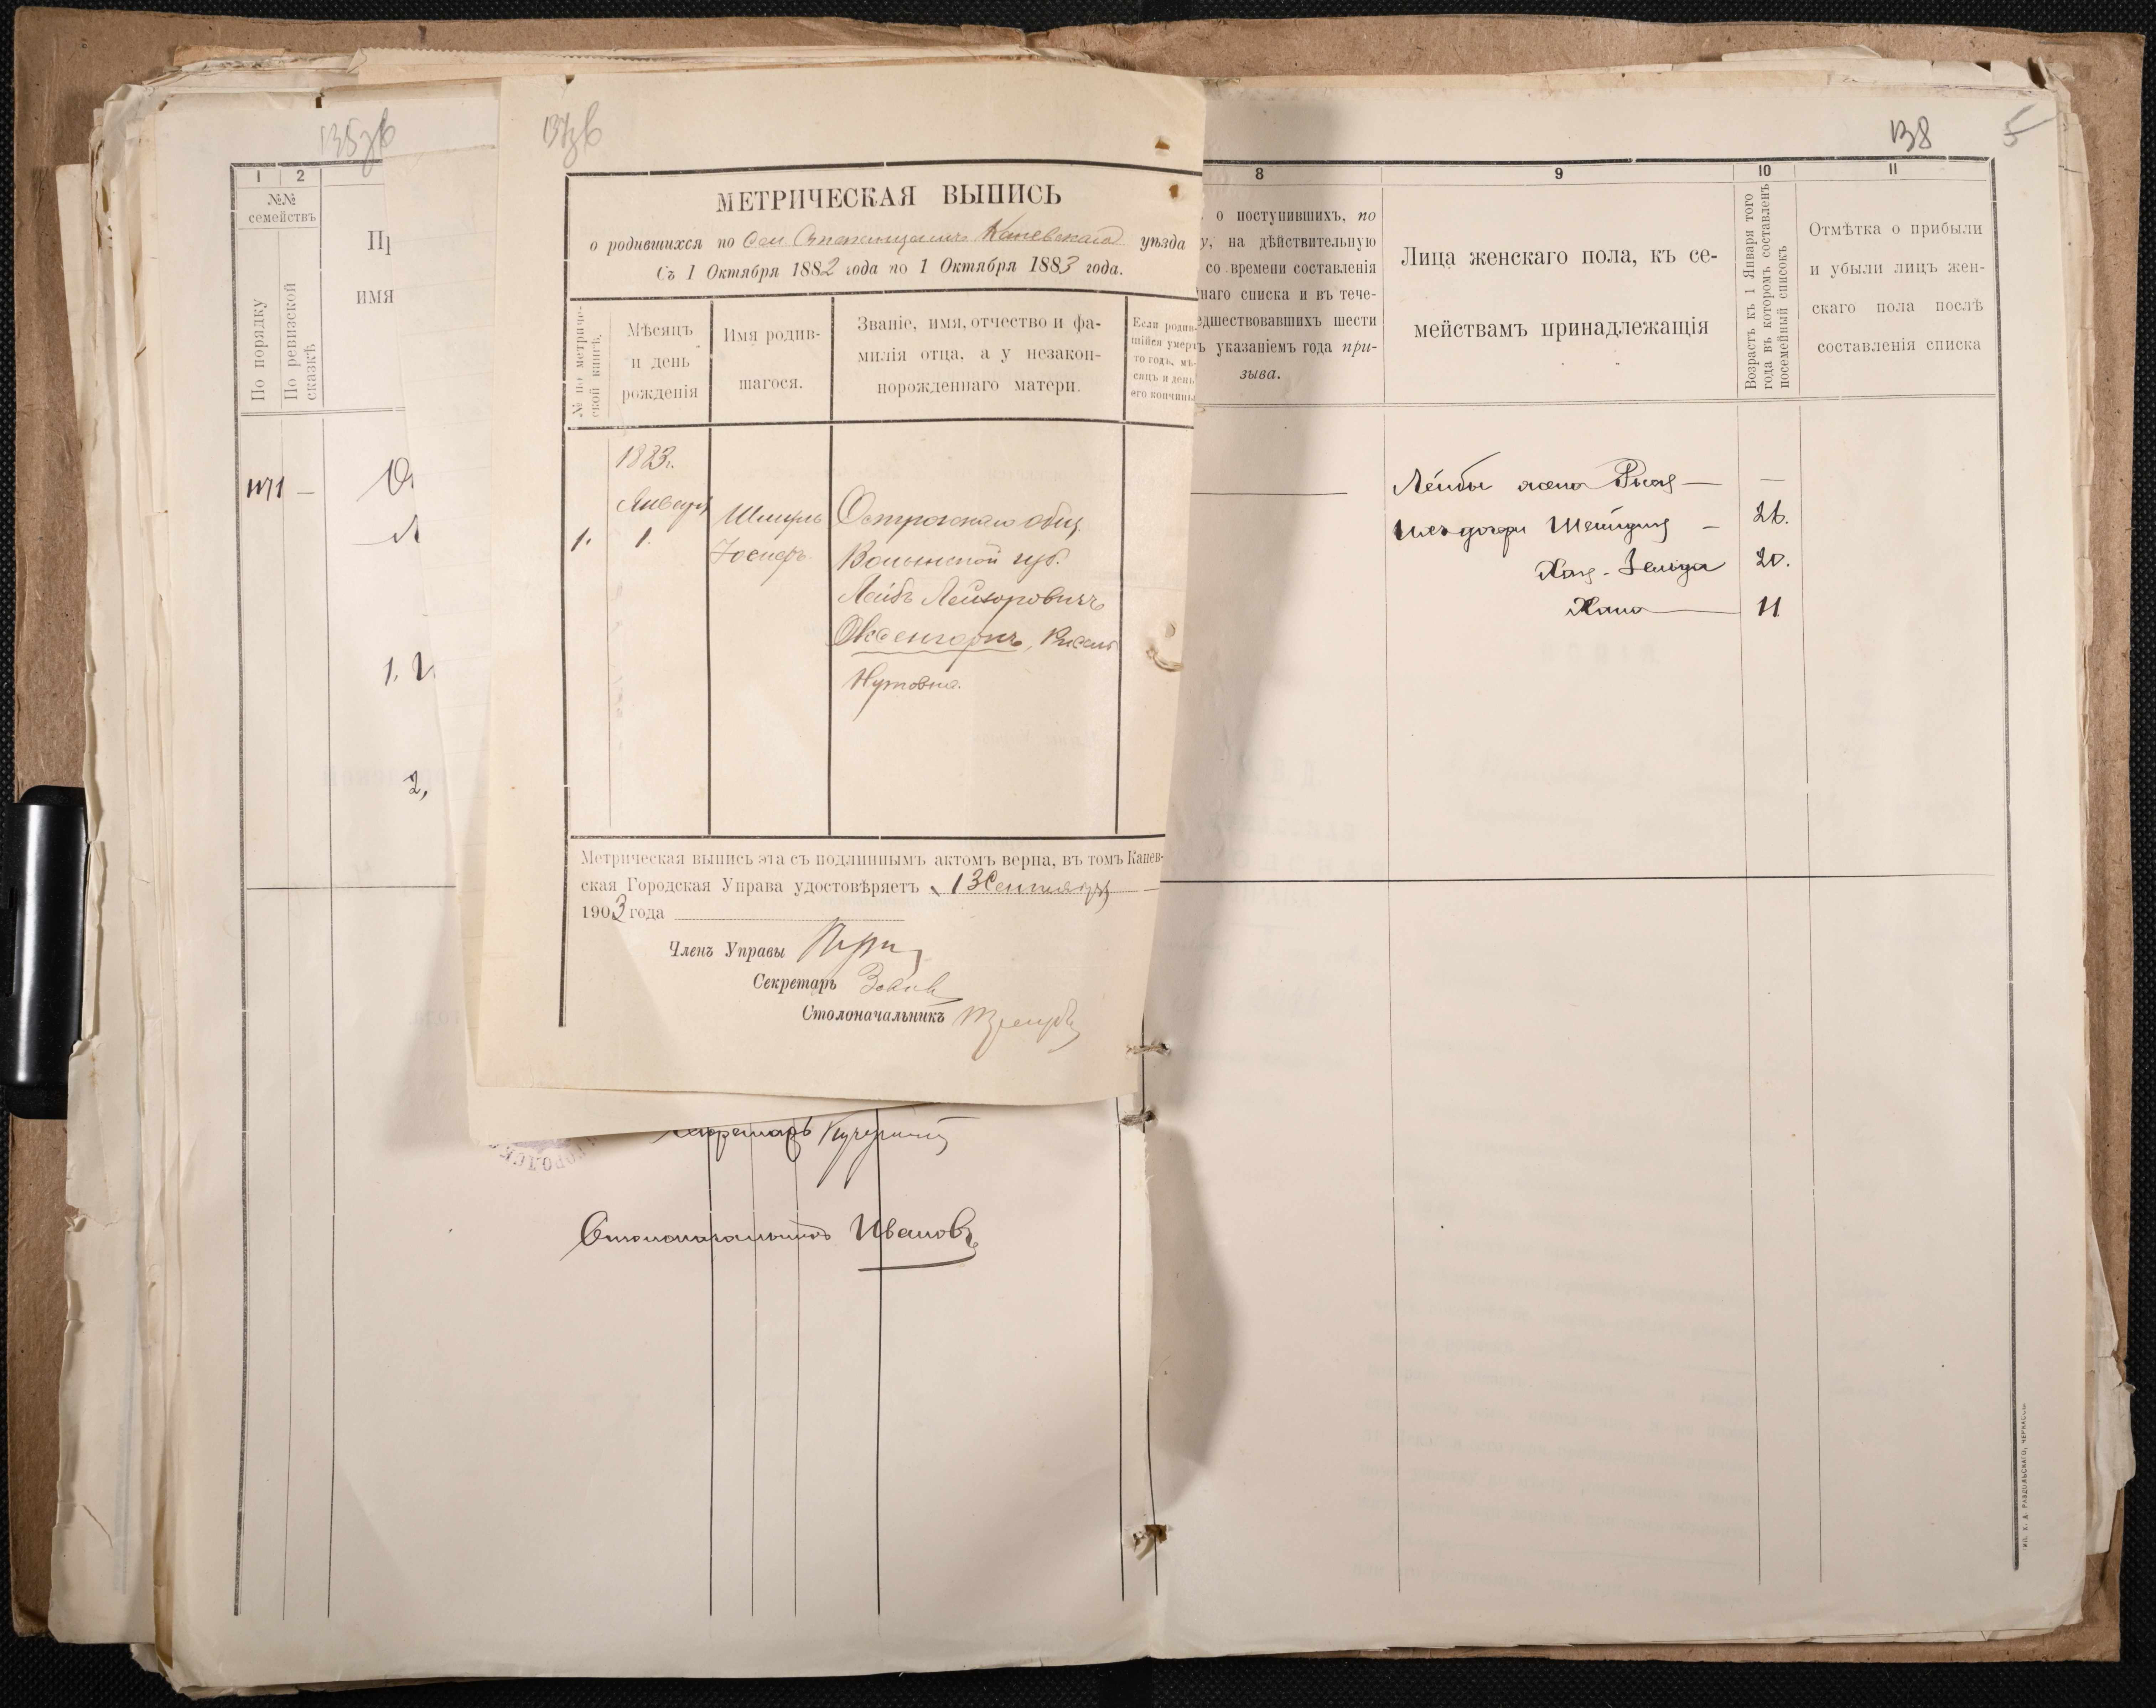 135 об
1
2
№№
семействъ
По порядку
По ревизской
сказкѣ
Пр
имя
1171 —
1.
2,
137 об
МЕТРИЧЕСКАЯ ВЫПИСЬ
о родившихся по Сел. Степанцамъ Каневскаго уѣзда
Съ 1 Октября 1882 года по 1 Октября 1883 года.
№ по метриче-
ской книгѣ.
Мѣсяцъ
и день
рожденія
Имя родив-
шагося.
Званіе, имя, отчество и фа-
милія отца, а у незакон-
норожденнаго матери.
Если родив-
шійся умеръ
то годъ, мѣ-
сяцъ и день
его кончины
1883г.
Января
1.
1.
Шмуль
Іосифъ
Острожскаго общ.
Волынской губ.
Лейбъ Лейзоровичъ
Оксенгорнъ,
Нутовна.
Метрическая выпись эта съ подлиннымъ актомъ верна, въ томъ Канев-
ская Городская Управа удостовѣряетъ 13 Сентября
1903 года
Членъ Управы
Секретарь
Столоначальникъ
Секретарь
Столоначальникъ Ивановъ
138
5
8
9
10
11
о поступившихъ, по
у, на дѣйствительную
со времени составленія
наго списка и въ тече-
едшествовавшихъ шести
ъ указаніемъ года при-
зыва.
Лица женскаго пола, къ се-
мействамъ принадлежащія
Возрастъ къ 1 Января того
года въ которомъ составленъ
посемейный списокъ
Отмѣтка о прибыли
и убыли лицъ жен-
скаго пола послѣ
составленія списка
Лейбы жена —
—
Ихъ дочери Шейндля — 26.
Хая-Зельда 20.
Хана — 11
ТИП. Х. Д. РАЗДОЛЬСКАГО, ЧЕРКАССЫ.